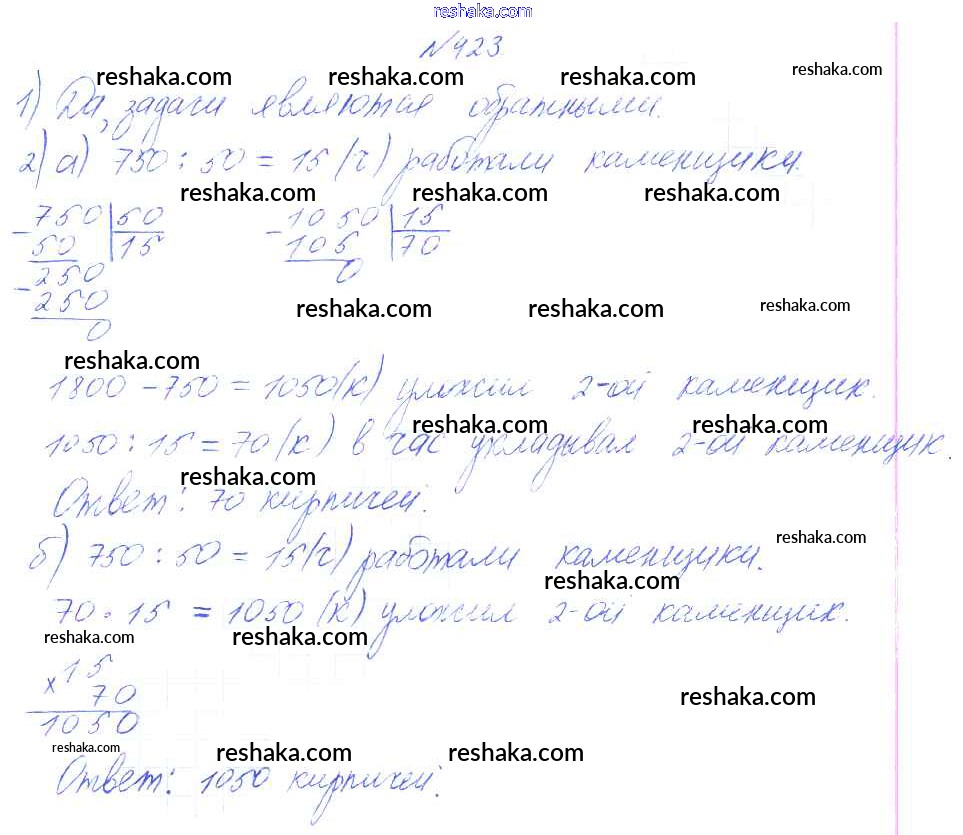 reshaka.com
№423
reshaka.com reshaka.com reshaka.com reshaka.com
1) Да, задачи являются обратными.
2) а) 750 : 50 = 15 (ч) работали каменщики.
reshaka.com reshaka.com reshaka.com
- 750 | 50 - 1050 | 15
50 | 15 105 | 70
- 250 0
250
reshaka.com reshaka.com reshaka.com
0
reshaka.com
1800 - 750 = 1050 (к) уложил 2-ой каменщик.
reshaka.com reshaka.com
1050 : 15 = 70 (к) в час укладывал 2-ой каменщик.
reshaka.com
Ответ: 70 кирпичей.
reshaka.com
б) 750 : 50 = 15 (ч) работали каменщики.
reshaka.com
70 · 15 = 1050 (к) уложил 2-ой каменщик.
reshaka.com reshaka.com
x 15
70
reshaka.com
1050
reshaka.com reshaka.com reshaka.com
Ответ: 1050 кирпичей.